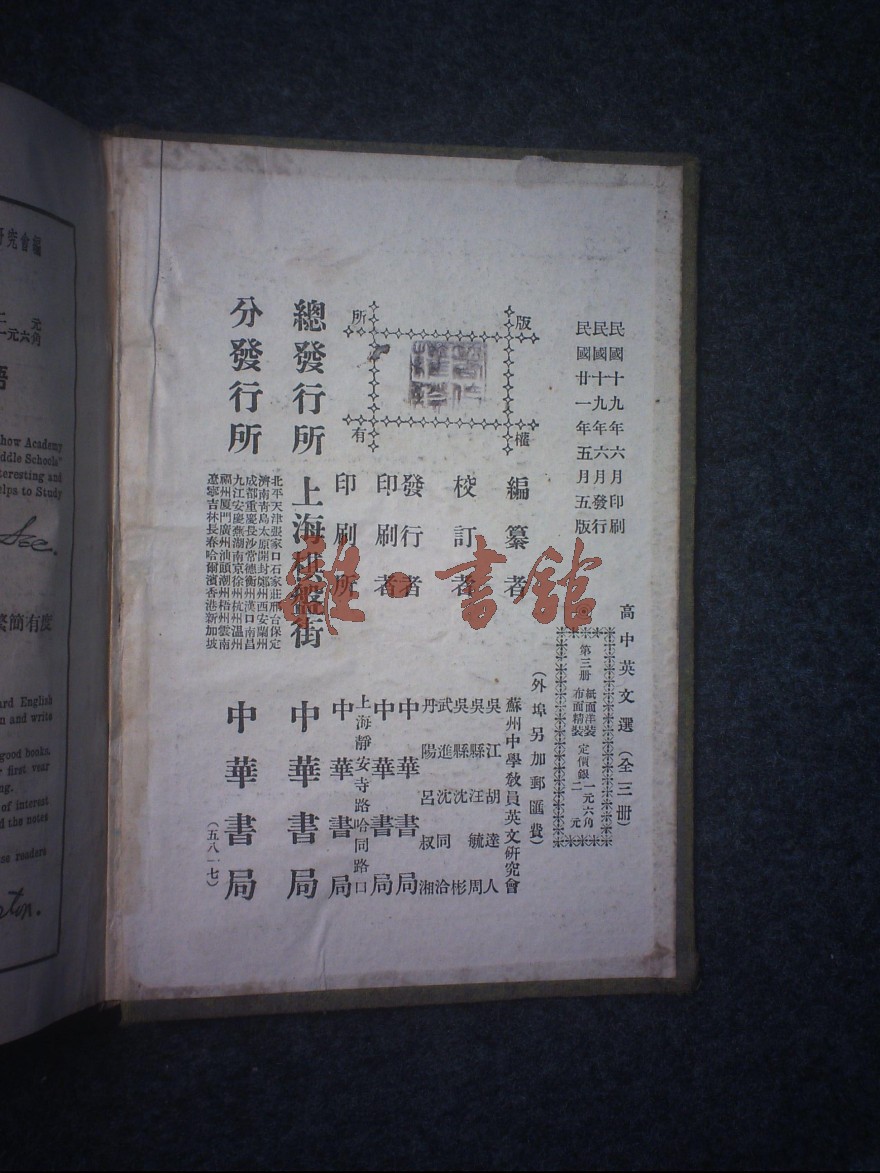 民國十九年六月印刷
民國十九年六月發行
民國廿一年五月五版
高中英文選（全三冊）
第三冊 紙面洋裝 定價銀一元六角
布面精裝 二元
（外埠另加郵匯費）
版權所有
編纂者 蘇州中學教員英文研究會
校訂者 吳江胡達人
吳縣汪毓周
吳縣沈彬
武進沈同洽
丹陽呂叔湘
發行者 中華書局
印刷者 中華書局
印刷所 上海靜安寺路哈同路口
中華書局
總發行所 上海棋盤街 中華書局
分發行所
北平天津張家口石家莊邢台保定
濟南青島太原開封鄭州西安蘭州
成都重慶長沙常德衡州漢口南昌
九江安慶蕪湖南京徐州杭州溫州
福州廈門廣州汕頭潮州梧州雲南
遼寧吉林長春哈爾濱香港新加坡
中華書局
（五八一七）
雜·書館
究會編
二元
一元六角
語
how Academy
ddle Schools"
teresting and
elps to Study
繁簡有度
ard English
n and write
good books.
first year
ng.
of interest
d the notes
se readers